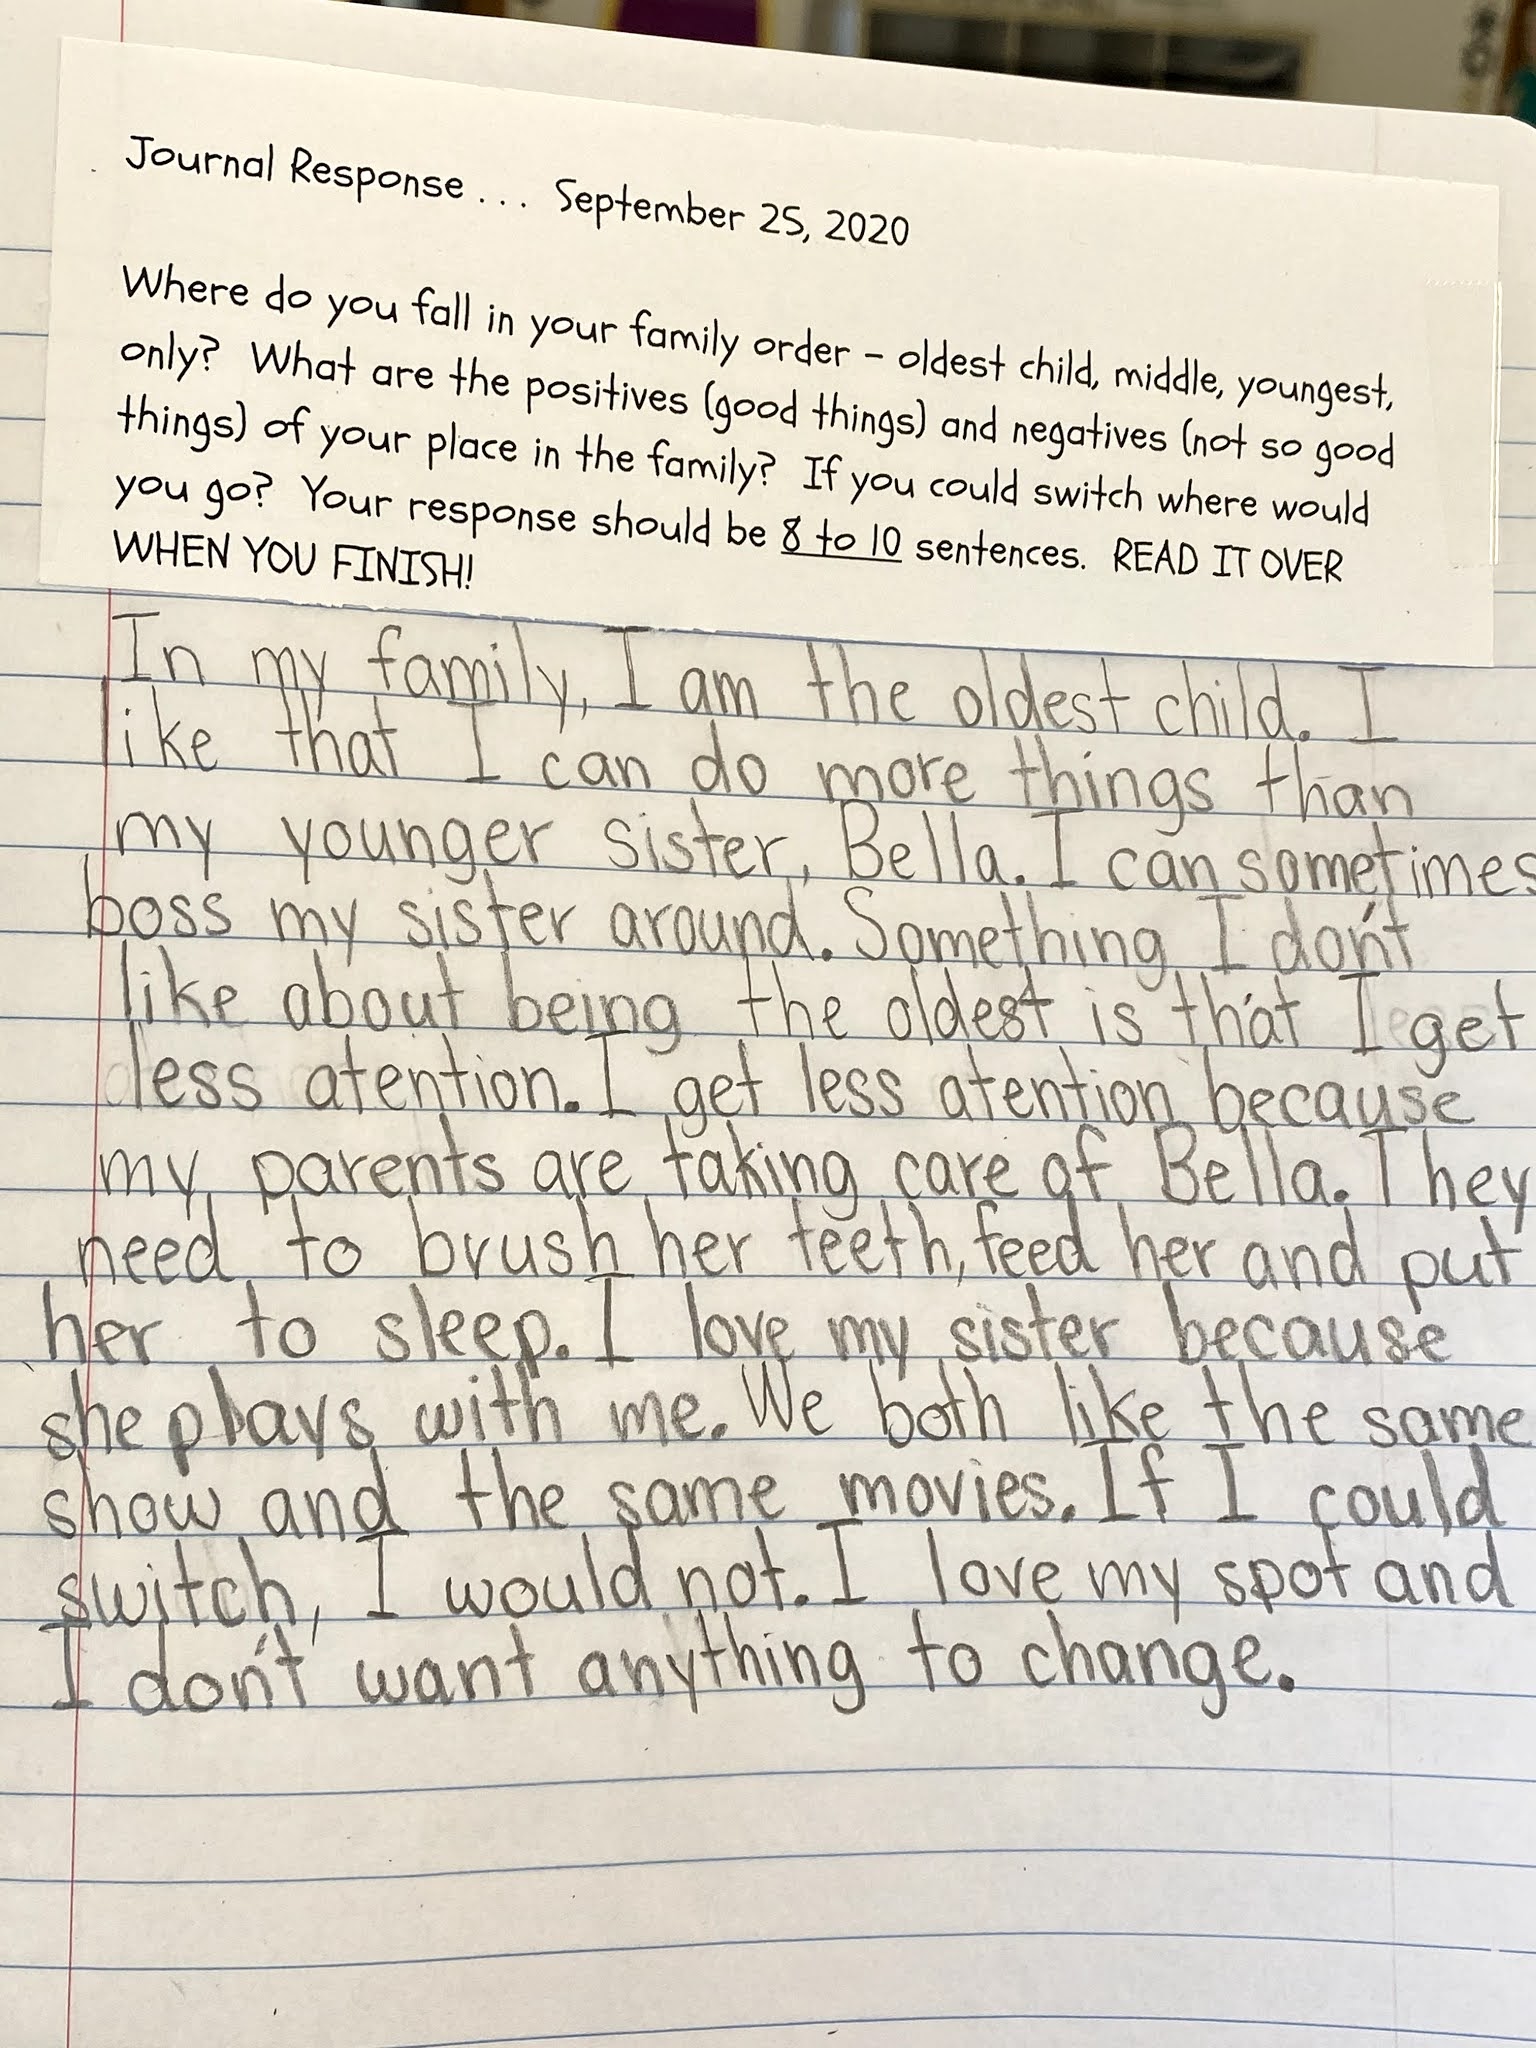 Journal Response... September 25, 2020
Where do you fall in your family order - oldest child, middle, youngest,
only? What are the positives (good things) and negatives (not so good
things) of your place in the family? If you could switch where would
you go? Your response should be 8 to 10 sentences. READ IT OVER
WHEN YOU FINISH!
In my family, I am the oldest child. I
like that I can do more things than
my younger sister, Bella. I can sometimes
boss my sister around. Something I don't
like about being the oldest is that I get
less atention. I get less atention because
my parents are taking care of Bella. They
need to brush her teeth, feed her and put
her to sleep. I love my sister because
she plays with me. We both like the same
show and the same movies. If I could
switch, I would not. I love my spot and
I don't want anything to change.